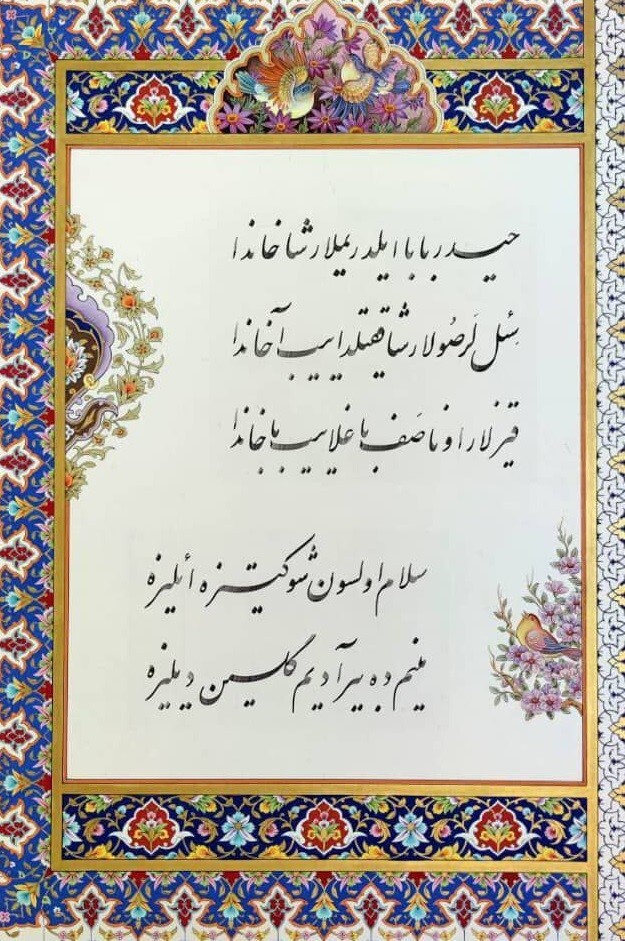 حیدربابا ایلدیریملار شاخاندا
سئل لر صُولار شاققیلداییب آخاندا
قیزلار اونا صَف باغلاییب باخاندا
سلام اولسون شوکتیزه أیلیزه
منیم ده بیر آدیم گلسین دیلیزه